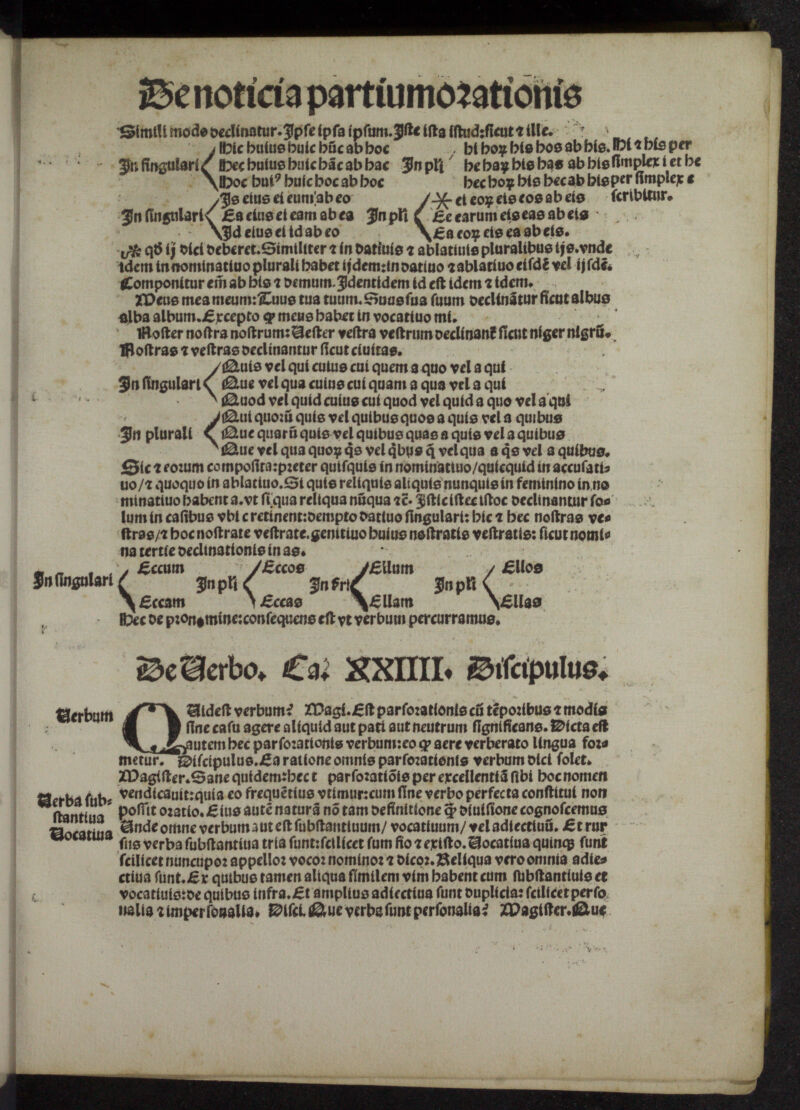 De noticia partium orationis
Simili modo declinatur. Ipse ipsa ipsum. Iste ista istud: sicut ⁊ ille.
Hic huius huic hũc ab hoc hi hoꝝ his hos ab his. Hi ⁊ his per
In singulari Hec huius huic hãc ab hac In pli he haꝝ his has ab his simplex i et he
Hoc huiꝰ huic hoc ab hoc hec hoꝝ his hec ab his per simplex e
Is eius ei eum ab eo ※ ei eoꝝ eis eos ab eis scribitur.
In singulari Ea eius ei eam ab ea In pli Ee earum eis eas ab eis
Id eius ei id ab eo Ea eoꝝ eis ea ab eis.
※ qđ ij dici deberet. Similiter ⁊ in datiuis ⁊ ablatiuis pluralibus ijs. vnde
idem in nominatiuo plurali habet ijdem: in datiuo ⁊ ablatiuo eisdẽ vel ijsdẽ.
Componitur em̃ ab his ⁊ demum. Identidem id est idem ⁊ idem.
Meus mea meum: Tuus tua tuum. Suus sua suum declinãtur sicut albus
alba album. Excepto ꝙ meus habet in vocatiuo mi.
Noster nostra nostrum: Vester vestra vestrum declinant̃ sicut niger nigrũ.
Nostras ⁊ vestras declinantur sicut ciuitas.
Quis vel qui cuius cui quem a quo vel a qui
In singulari Que vel qua cuius cui quam a qua vel a qui
Quod vel quid cuius cui quod vel quid a quo vel a qui
Qui quorũ quis vel quibus quos a quis vel a quibus
In plurali Que quarũ quis vel quibus quas a quis vel a quibus
Que vel qua quoꝝ q̃s vel q̃bus q̃ vel qua a q̃s vel a quibus.
Sic ⁊ eorum composita: preter quisquis in nominatiuo/ quicquid in accusati-
uo/ ⁊ quoquo in ablatiuo. Si quis reliquis aliquis nunquis in feminino in no
minatiuo habent a. vt si qua reliqua nũqua ⁊c̃. Istic istec istoc declinantur so-
lum in casibus vbi c retinent: dempto datiuo singulari: hic ⁊ hec nostras ve-
stras/ ⁊ hoc nostrate vestrate. genitiuo huius nostratis vestratis: sicut nomi-
na tertie declinationis in as.
Eccum Eccos Ellum Ellos
In singulari In pli In sri In pli
Eccam Eccas Ellam Ellas
Hec de pronomine: consequens est vt verbum percurramus.
De Verbo. Ca. XXIIII. Discipulus.
Verbum QVid est verbum? Magi. Est pars orationis cũ tẽporibus ⁊ modis
sine casu agere aliquid aut pati aut neutrum significans. Dicta est
autem hec pars orationis verbum: eo ꝙ aere verberato lingua for-
metur. Discipulus. Ea ratione omnis pars orationis verbum dici solet.
Magister. Sane quidem: hec t pars oratiõis per excellentiã sibi hoc nomen
Verba sub- vendicauit: quia eo frequẽtius vtimur: cum sine verbo perfecta constitui non
stantiua possit oratio. Eius autẽ naturã nõ tam definitione ꝙ̃ diuisione cognoscemus
Vocatiua Vnde omne verbum aut est substantiuum/ vocatiuum/ vel adiectiuũ. Et rur
sus verba substantiua tria sunt: scilicet sum fio ⁊ existo. Vocatiua quinqꝫ sunt
scilicet nuncupor appellor vocor nominor ⁊ dicor. Reliqua vero omnia adie-
ctiua sunt. Ex quibus tamen aliqua similem vim habent cum substantiuis et
vocatiuis: de quibus infra. Et amplius adiectiua sunt duplicia: scilicet perso
nalia ⁊ impersonalia. Disci. Que verba sunt personalia? Magister. Que